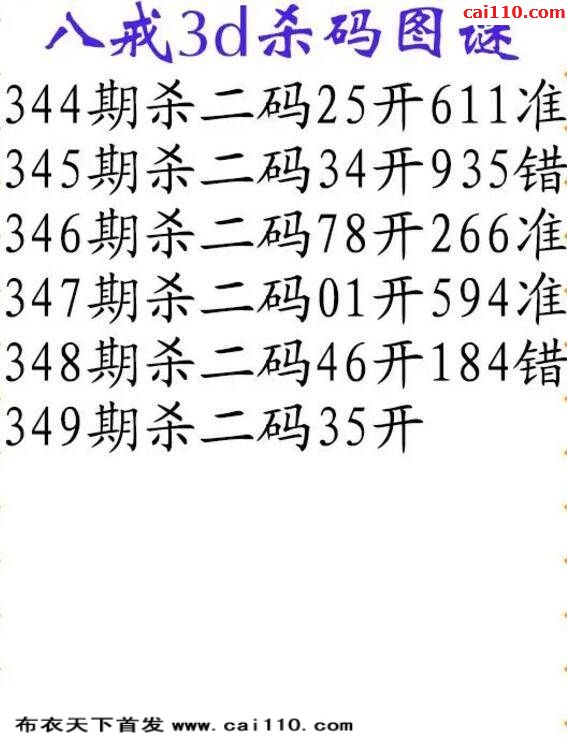 cai110.com
八戒3d杀码图谜
344期杀二码25开611准
345期杀二码34开935错
346期杀二码78开266准
347期杀二码01开594准
348期杀二码46开184错
349期杀二码35开
布衣天下首发 www.cai110.com